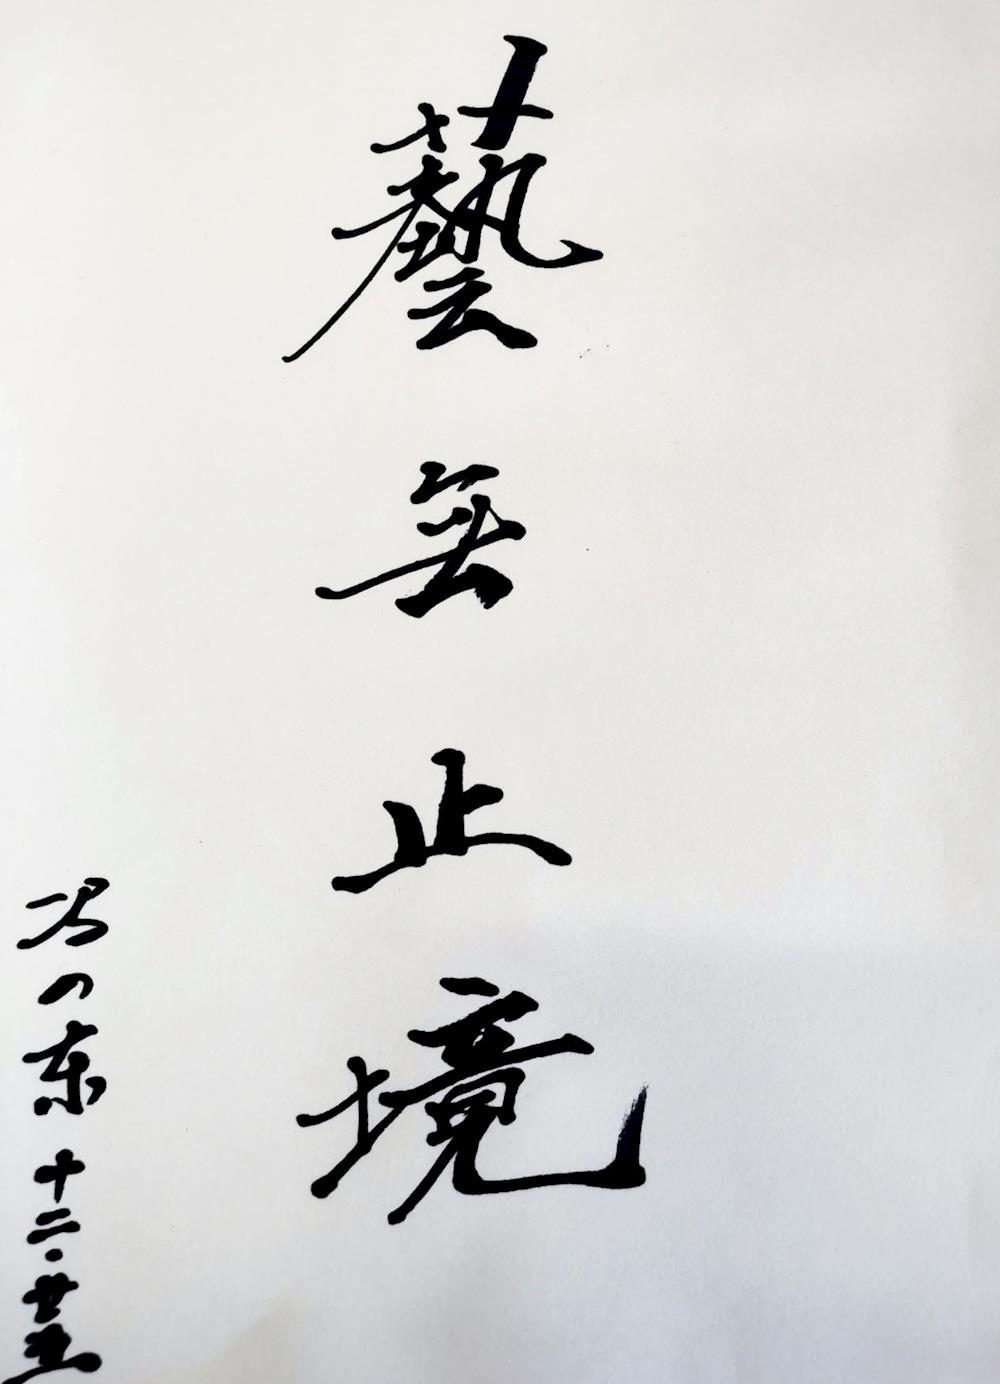 藝無止境
冯の东十二·廿五